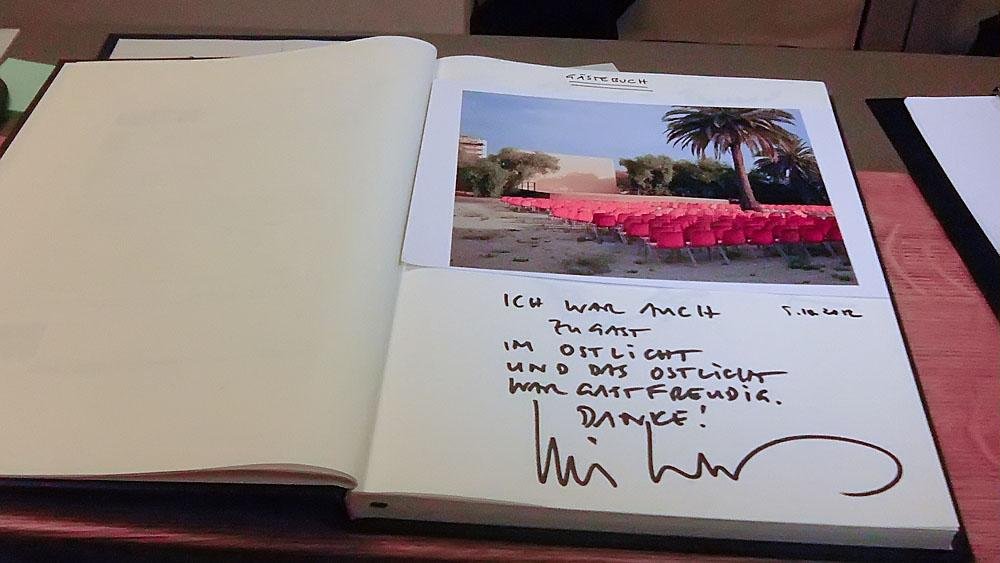 GÄSTEBUCH
ICH WAR AUCH
ZU GAST
IM OSTLICHT
UND DAS OSTLICHT
WAR GASTFREUDIG.
DANKE!